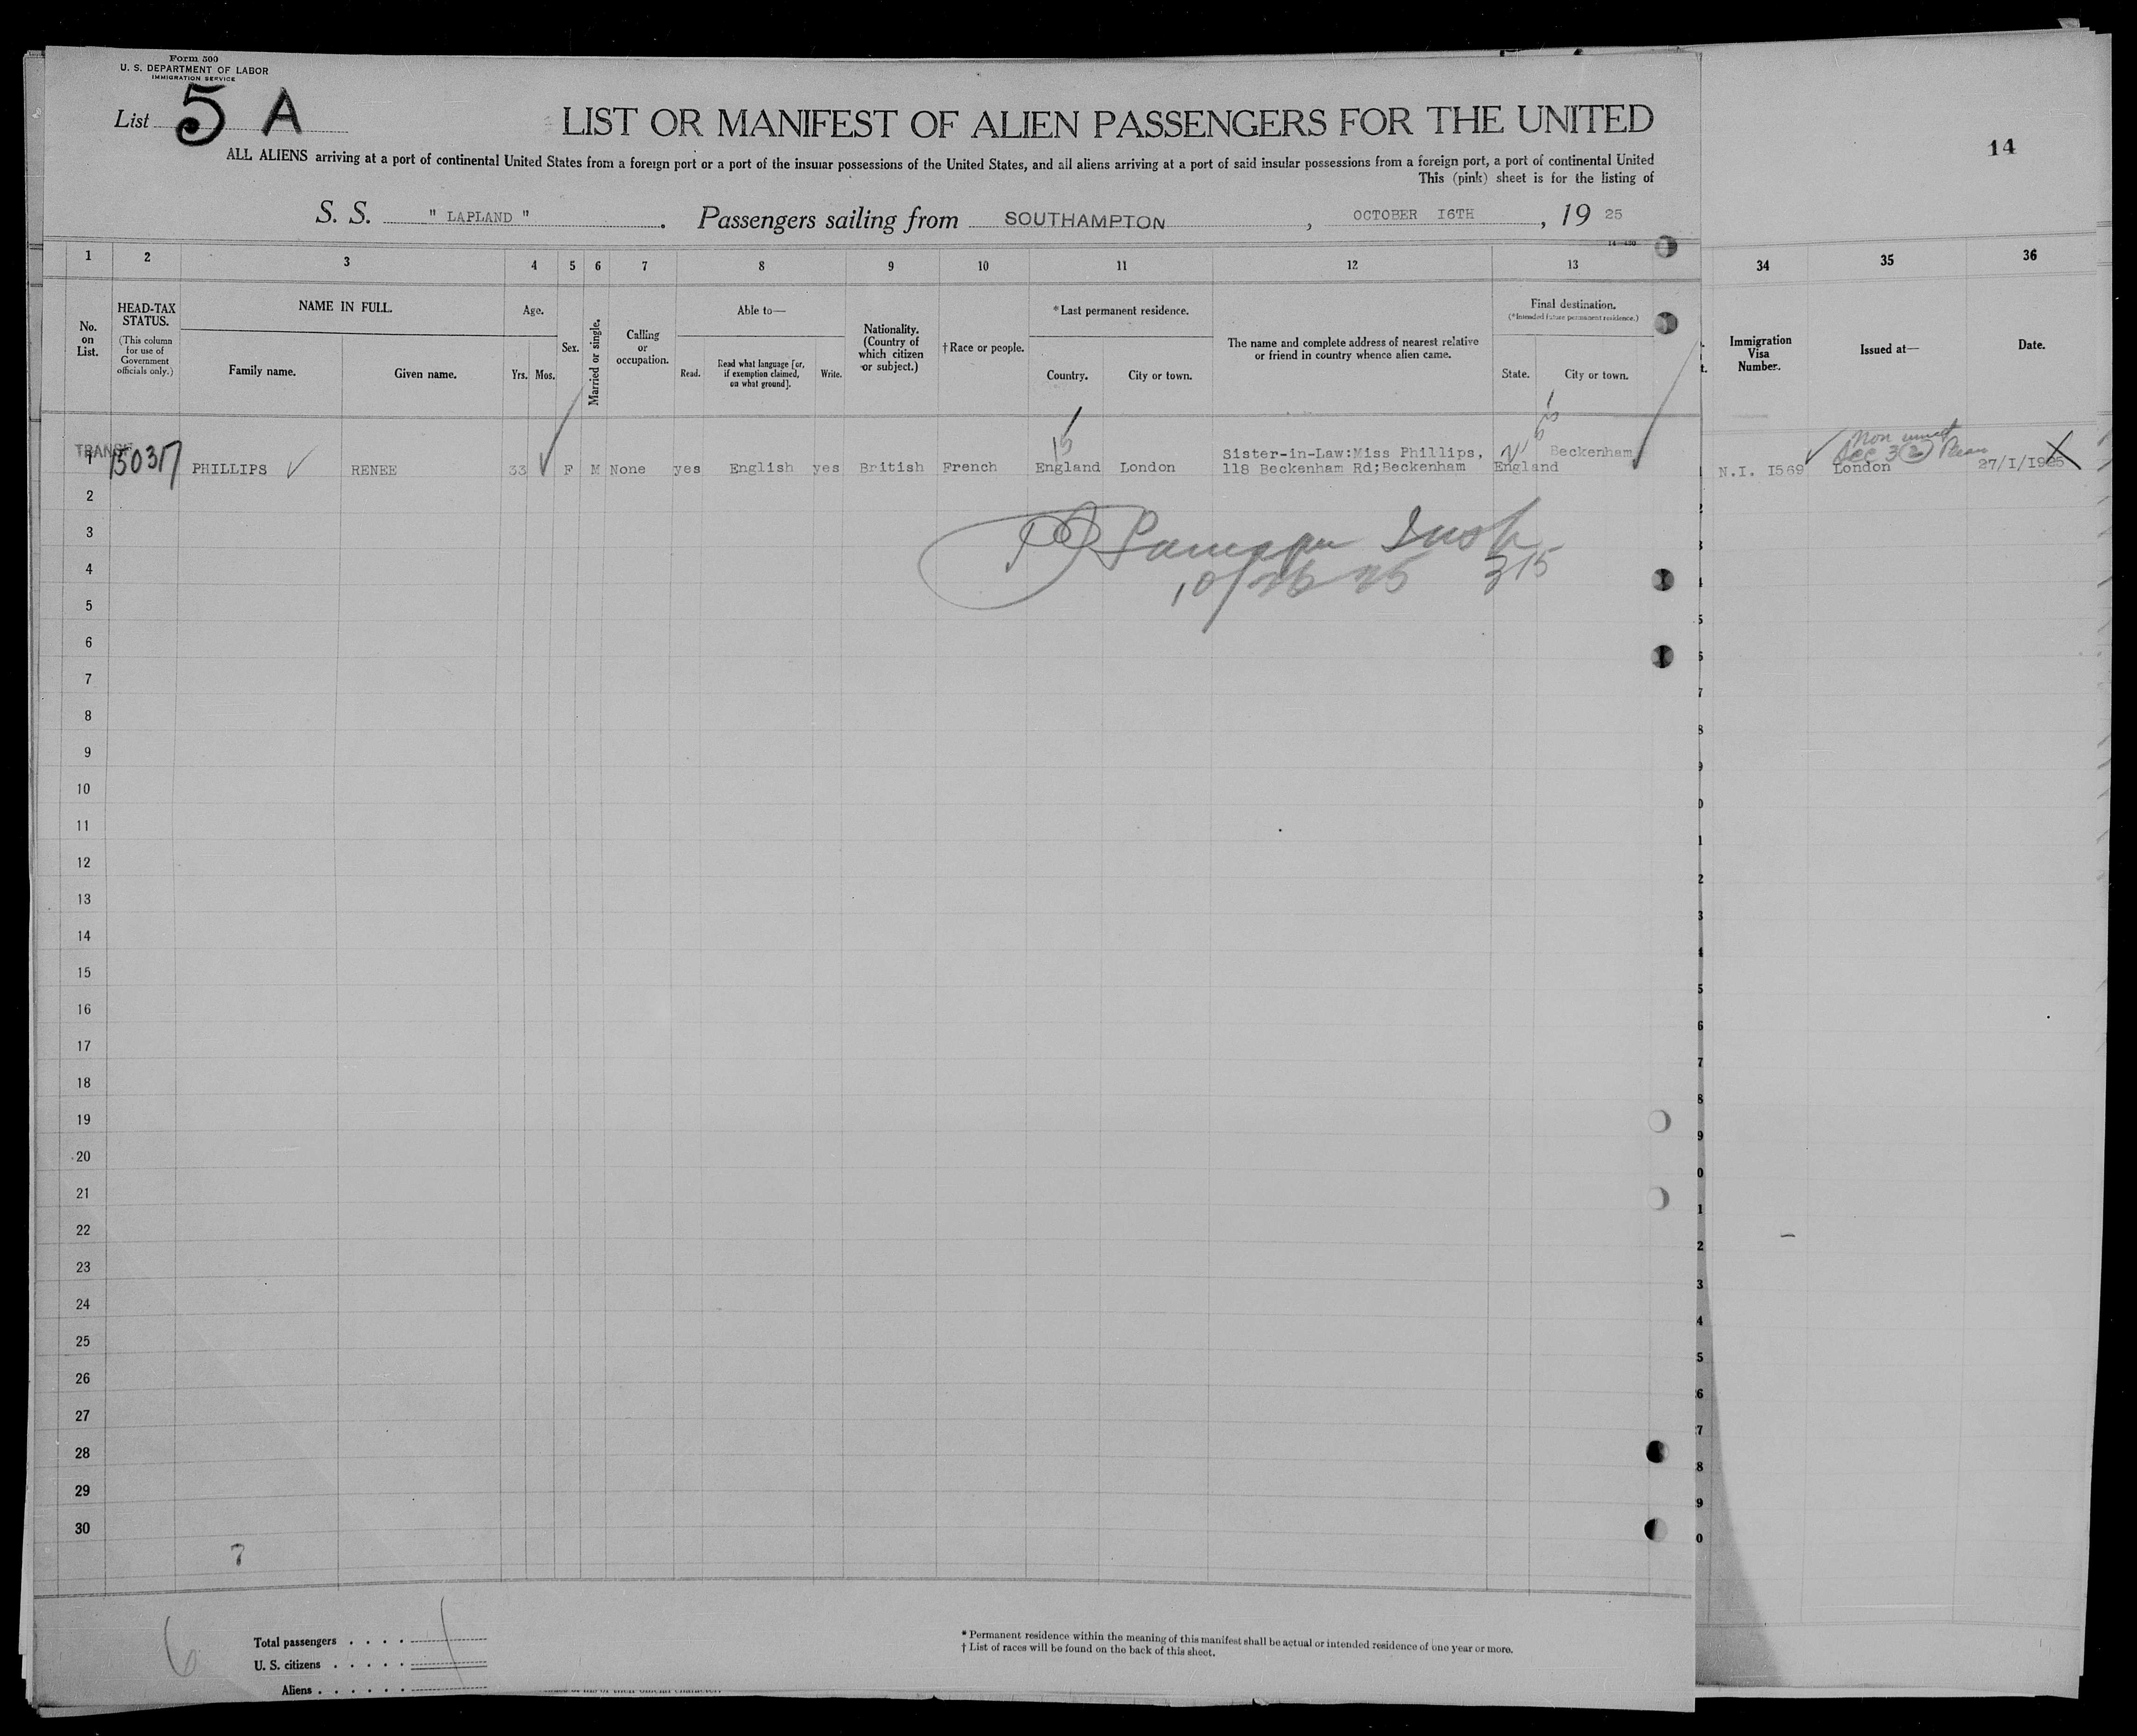 Form 500
U. S. DEPARTMENT OF LABOR
IMMIGRATION SERVICE
List 5 A
LIST OR MANIFEST OF ALIEN PASSENGERS FOR THE UNITED
ALL ALIENS arriving at a port of continental United States from a foreign port or a port of the insular possessions of the United States, and all aliens arriving at a port of said insular possessions from a foreign port, a port of continental United
This (pink) sheet is for the listing of
14
S. S. " LAPLAND ". Passengers sailing from SOUTHAMPTON, OCTOBER I6TH, 19 25
1 2 3 4 5 6 7 8 9 10 11 12 13 34 35 36
No. on List.
HEAD-TAX STATUS.
(This column for use of Government officials only.)
NAME IN FULL.
Family name.
Given name.
Age.
Yrs. Mos.
Sex.
Married or single.
Calling or occupation.
Able to—
Read.
Read what language [or, if exemption claimed, on what ground].
Write.
Nationality. (Country of which citizen or subject.)
†Race or people.
*Last permanent residence.
Country.
City or town.
The name and complete address of nearest relative or friend in country whence alien came.
Final destination.
(*Intended future permanent residence.)
State.
City or town.
Immigration Visa Number.
Issued at—
Date.
1 PHILLIPS RENEE 33 F M None yes English yes British French England London Sister-in-Law:Miss Phillips, 118 Beckenham Rd;Beckenham England Beckenham N.I. I569 London 27/I/I925
10/26 25 315
2
3
4
5
6
7
8
9
10
11
12
13
14
15
16
17
18
19
20
21
22
23
24
25
26
27
28
29
30
7
6
Total passengers
U. S. citizens
Aliens
* Permanent residence within the meaning of this manifest shall be actual or intended residence of one year or more.
† List of races will be found on the back of this sheet.